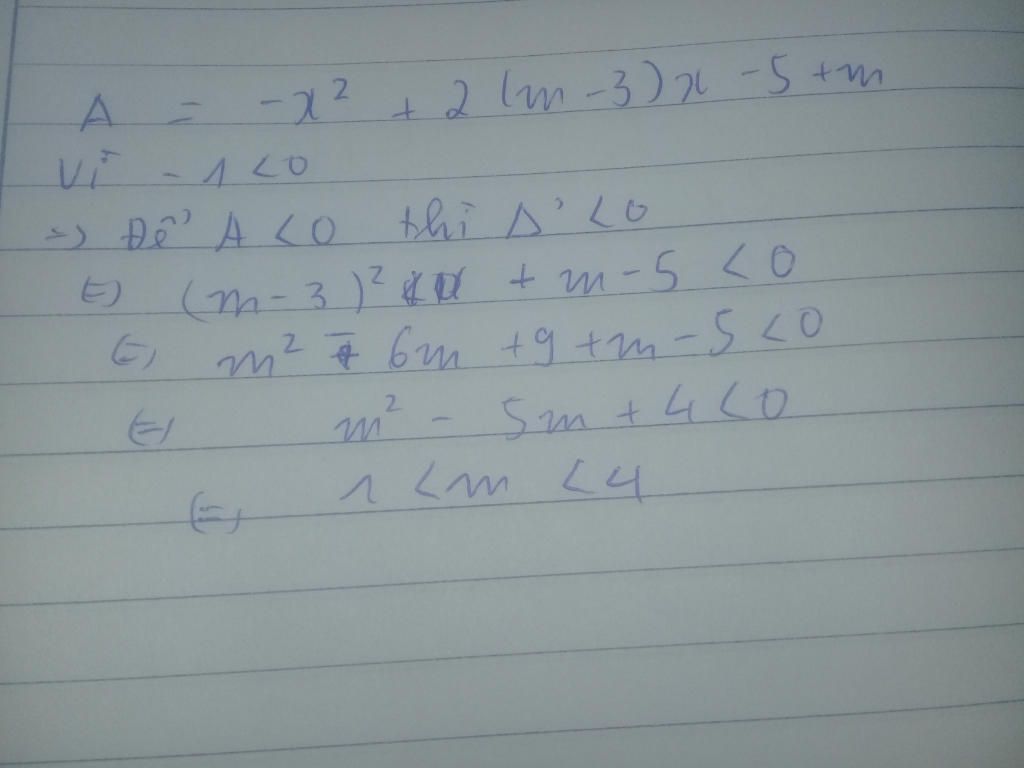 A = -x² + 2(m-3)x - 5 + m
Vì -1 < 0
=> Để A < 0 thì Δ' < 0
(=) (m-3)² + m - 5 < 0
(=) m² - 6m + 9 + m - 5 < 0
(=) m² - 5m + 4 < 0
(=) 1 < m < 4